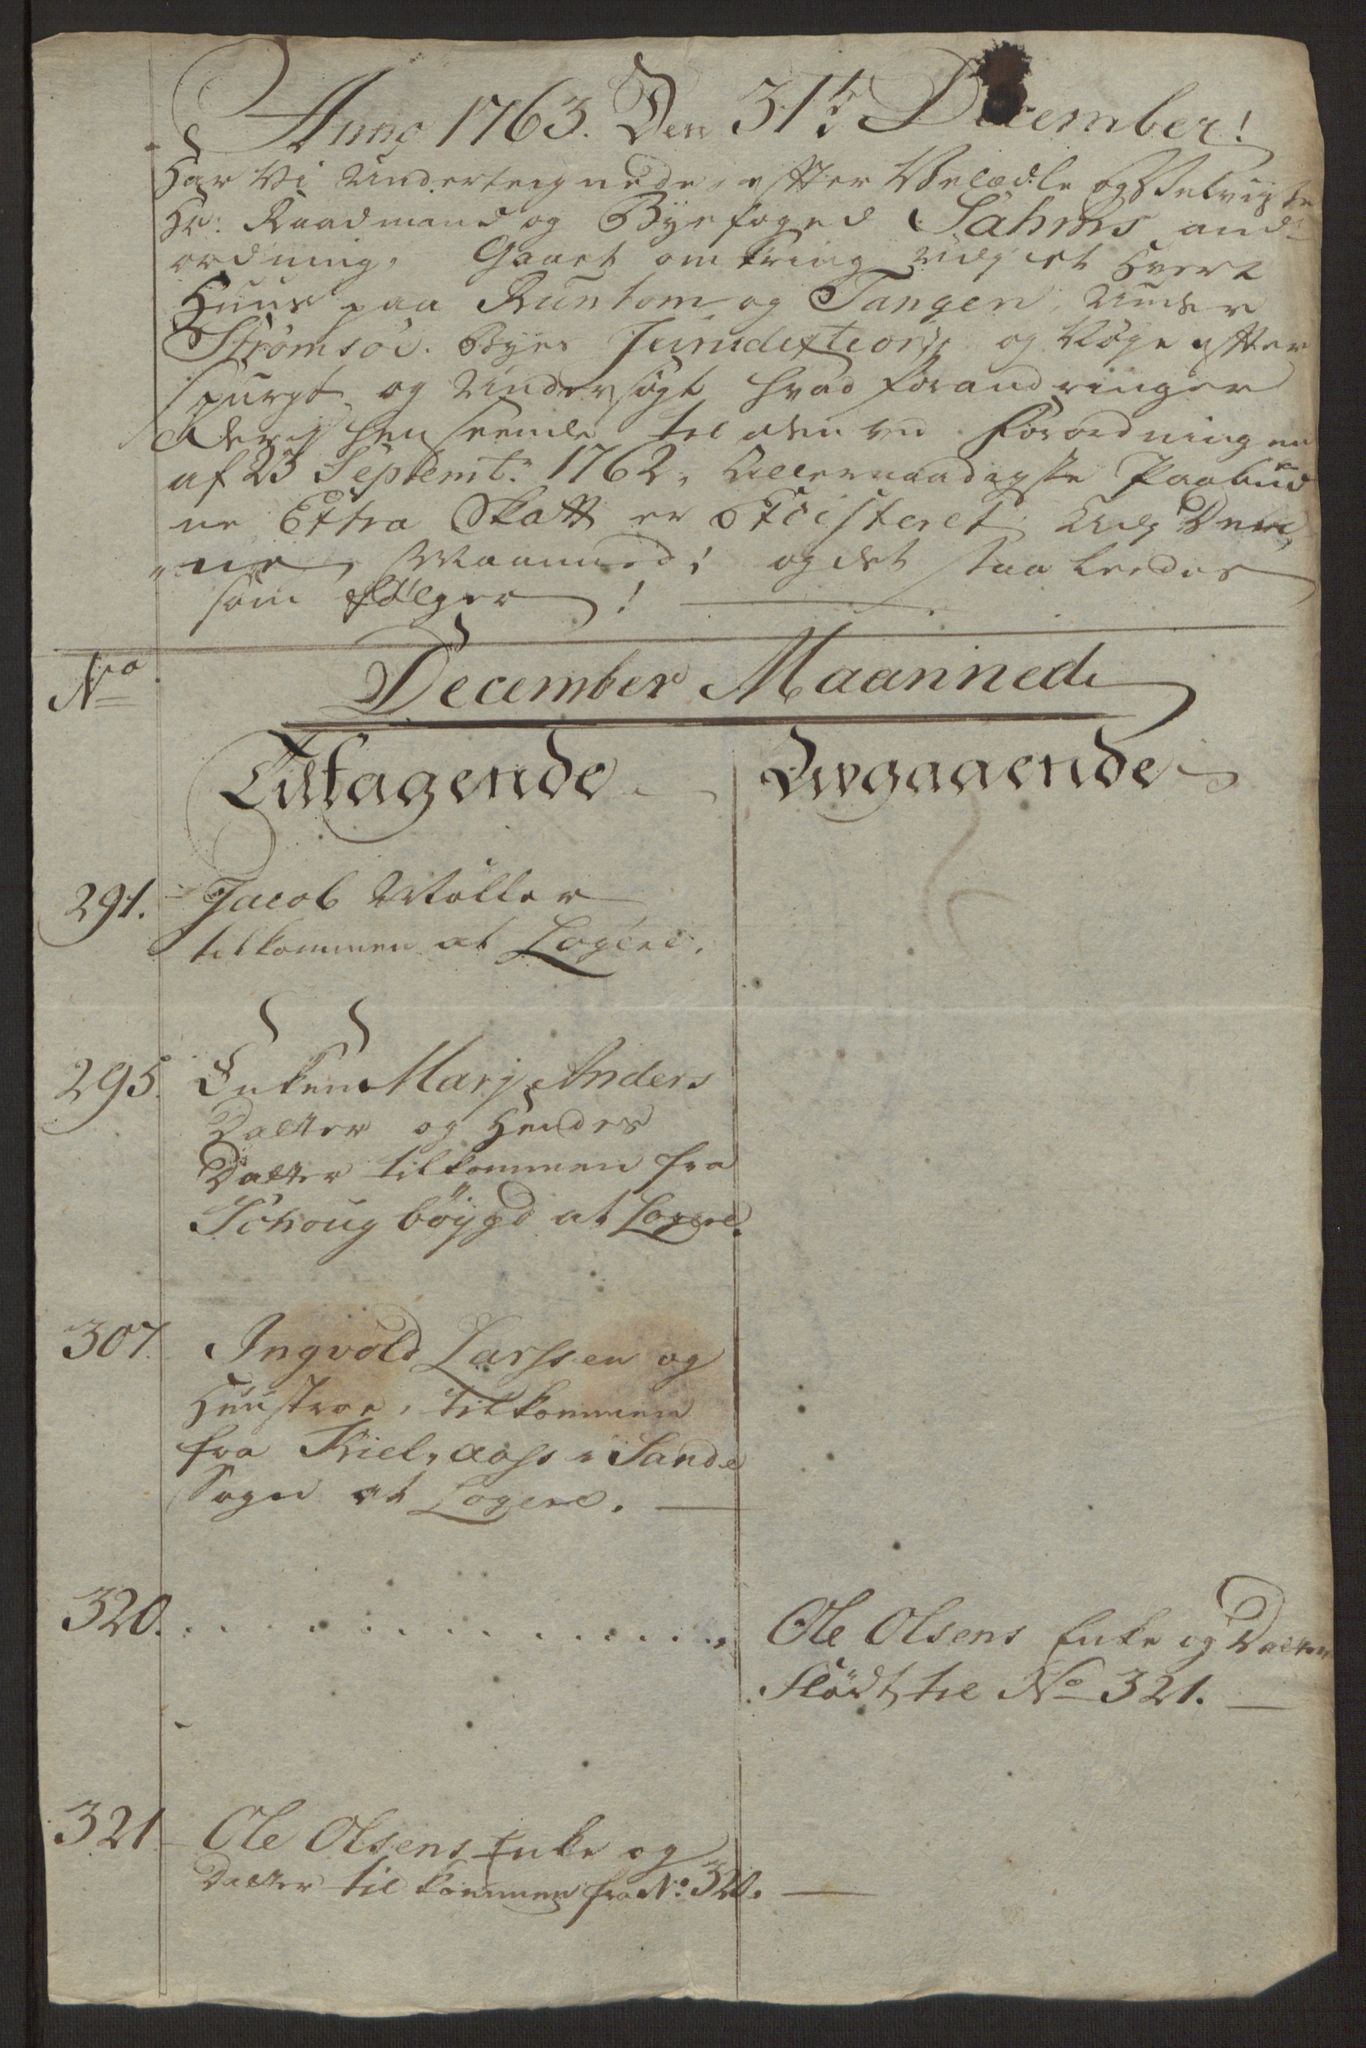 Anno 1763. Den 31te December!
Har Vi Underteignede, efter Velædle og Velviise
Hr: Raadmand og Byefoged Sahms and-
ordning, Gaaet omkring udj et hvert
Huus paa Runtom og Tangen, Under
Strømsøe Byes Jurisdiction, og Nøye efter
spurgt og Undersøgt hvad forandringer
derj henseende til den ved Forordningen
af 23 Septembr. 1762, Allernaadigste Paabud
ne Extra Skatt er Existeret udj Den
ne Maanned; og det saaleedes
som følger!
No
December Maanned
Tiltagende
Avgaaende
291. Jacob Møller
tilkommen at Logere.
295. Enken Marj Anders
Datter og Hendes
Datter tilkommen fra
Schougbøygd at Logere.
307. Ingvold Larssen og
Huustroe, tilkommen
fra Kiel, i Sande
Sogn at Logere.
320. . . . . . . . . . . . . . Ole Olsens Enke og Datter
fløtt til No 321.
321 Ole Olsens Enke og
Datter tilkommen fra No. 320.